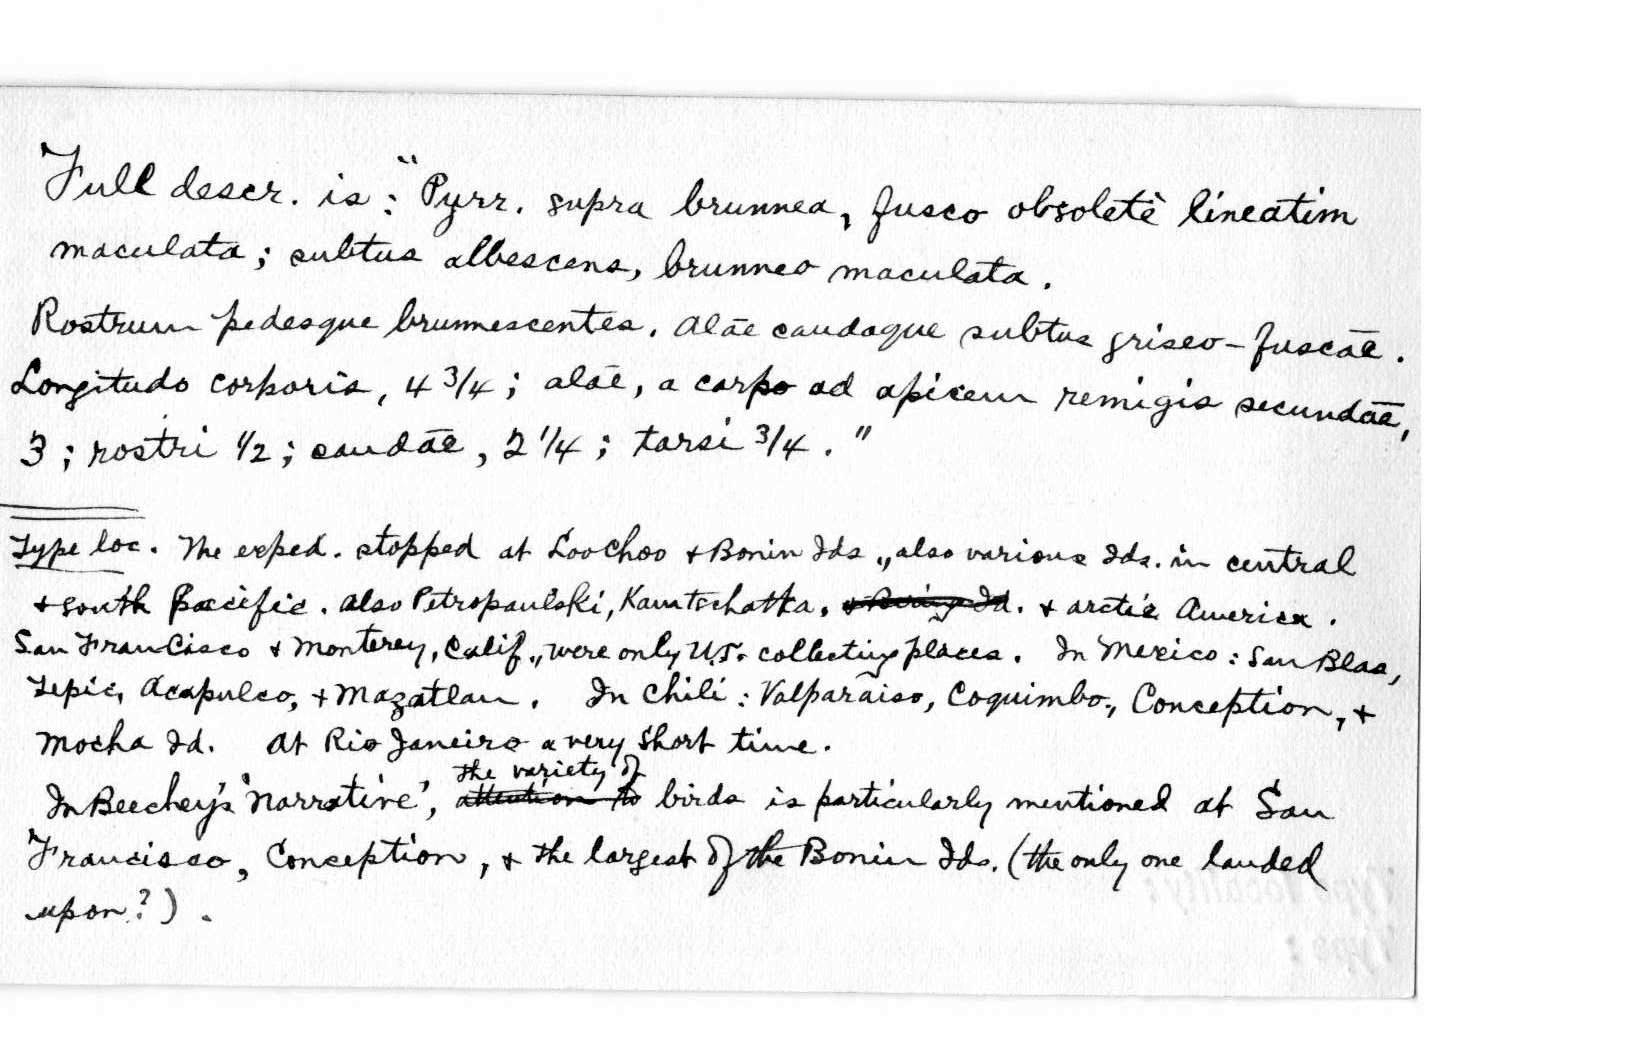 Full descr. is: "Pyrr. supra brunnea, fusco obsoletè lineatim
maculata; subtus albescens, brunneo maculata.
Rostrum pedesque brunnescentes. Alāe caudaque subtus griseo-fuscāe.
Longitudo corporis, 4 3/4; alāe, a carpo ad apicem remigis secundāe,
3; rostri 1/2; caudāe, 2 1/4; tarsi 3/4."
Type loc. The exped. stopped at Loochoo & Bonin Ids., also various Ids. in central
& south Pacific. Also Petropaulski, Kamtschatka, & arctic America.
San Francisco & Monterey, Calif., were only U.S. collecting places. In Mexico: San Blas,
Tepic, Acapulco, & Mazatlan. In Chili: Valparaiso, Coquimbo, Conception, &
Mocha Id. At Rio Janeiro a very short time.
the variety of
In Beechey's 'Narrative', attention to birds is particularly mentioned at San
Francisco, Conception, & the largest of the Bonin Ids. (the only one landed
upon?).
Type locality:
Type: